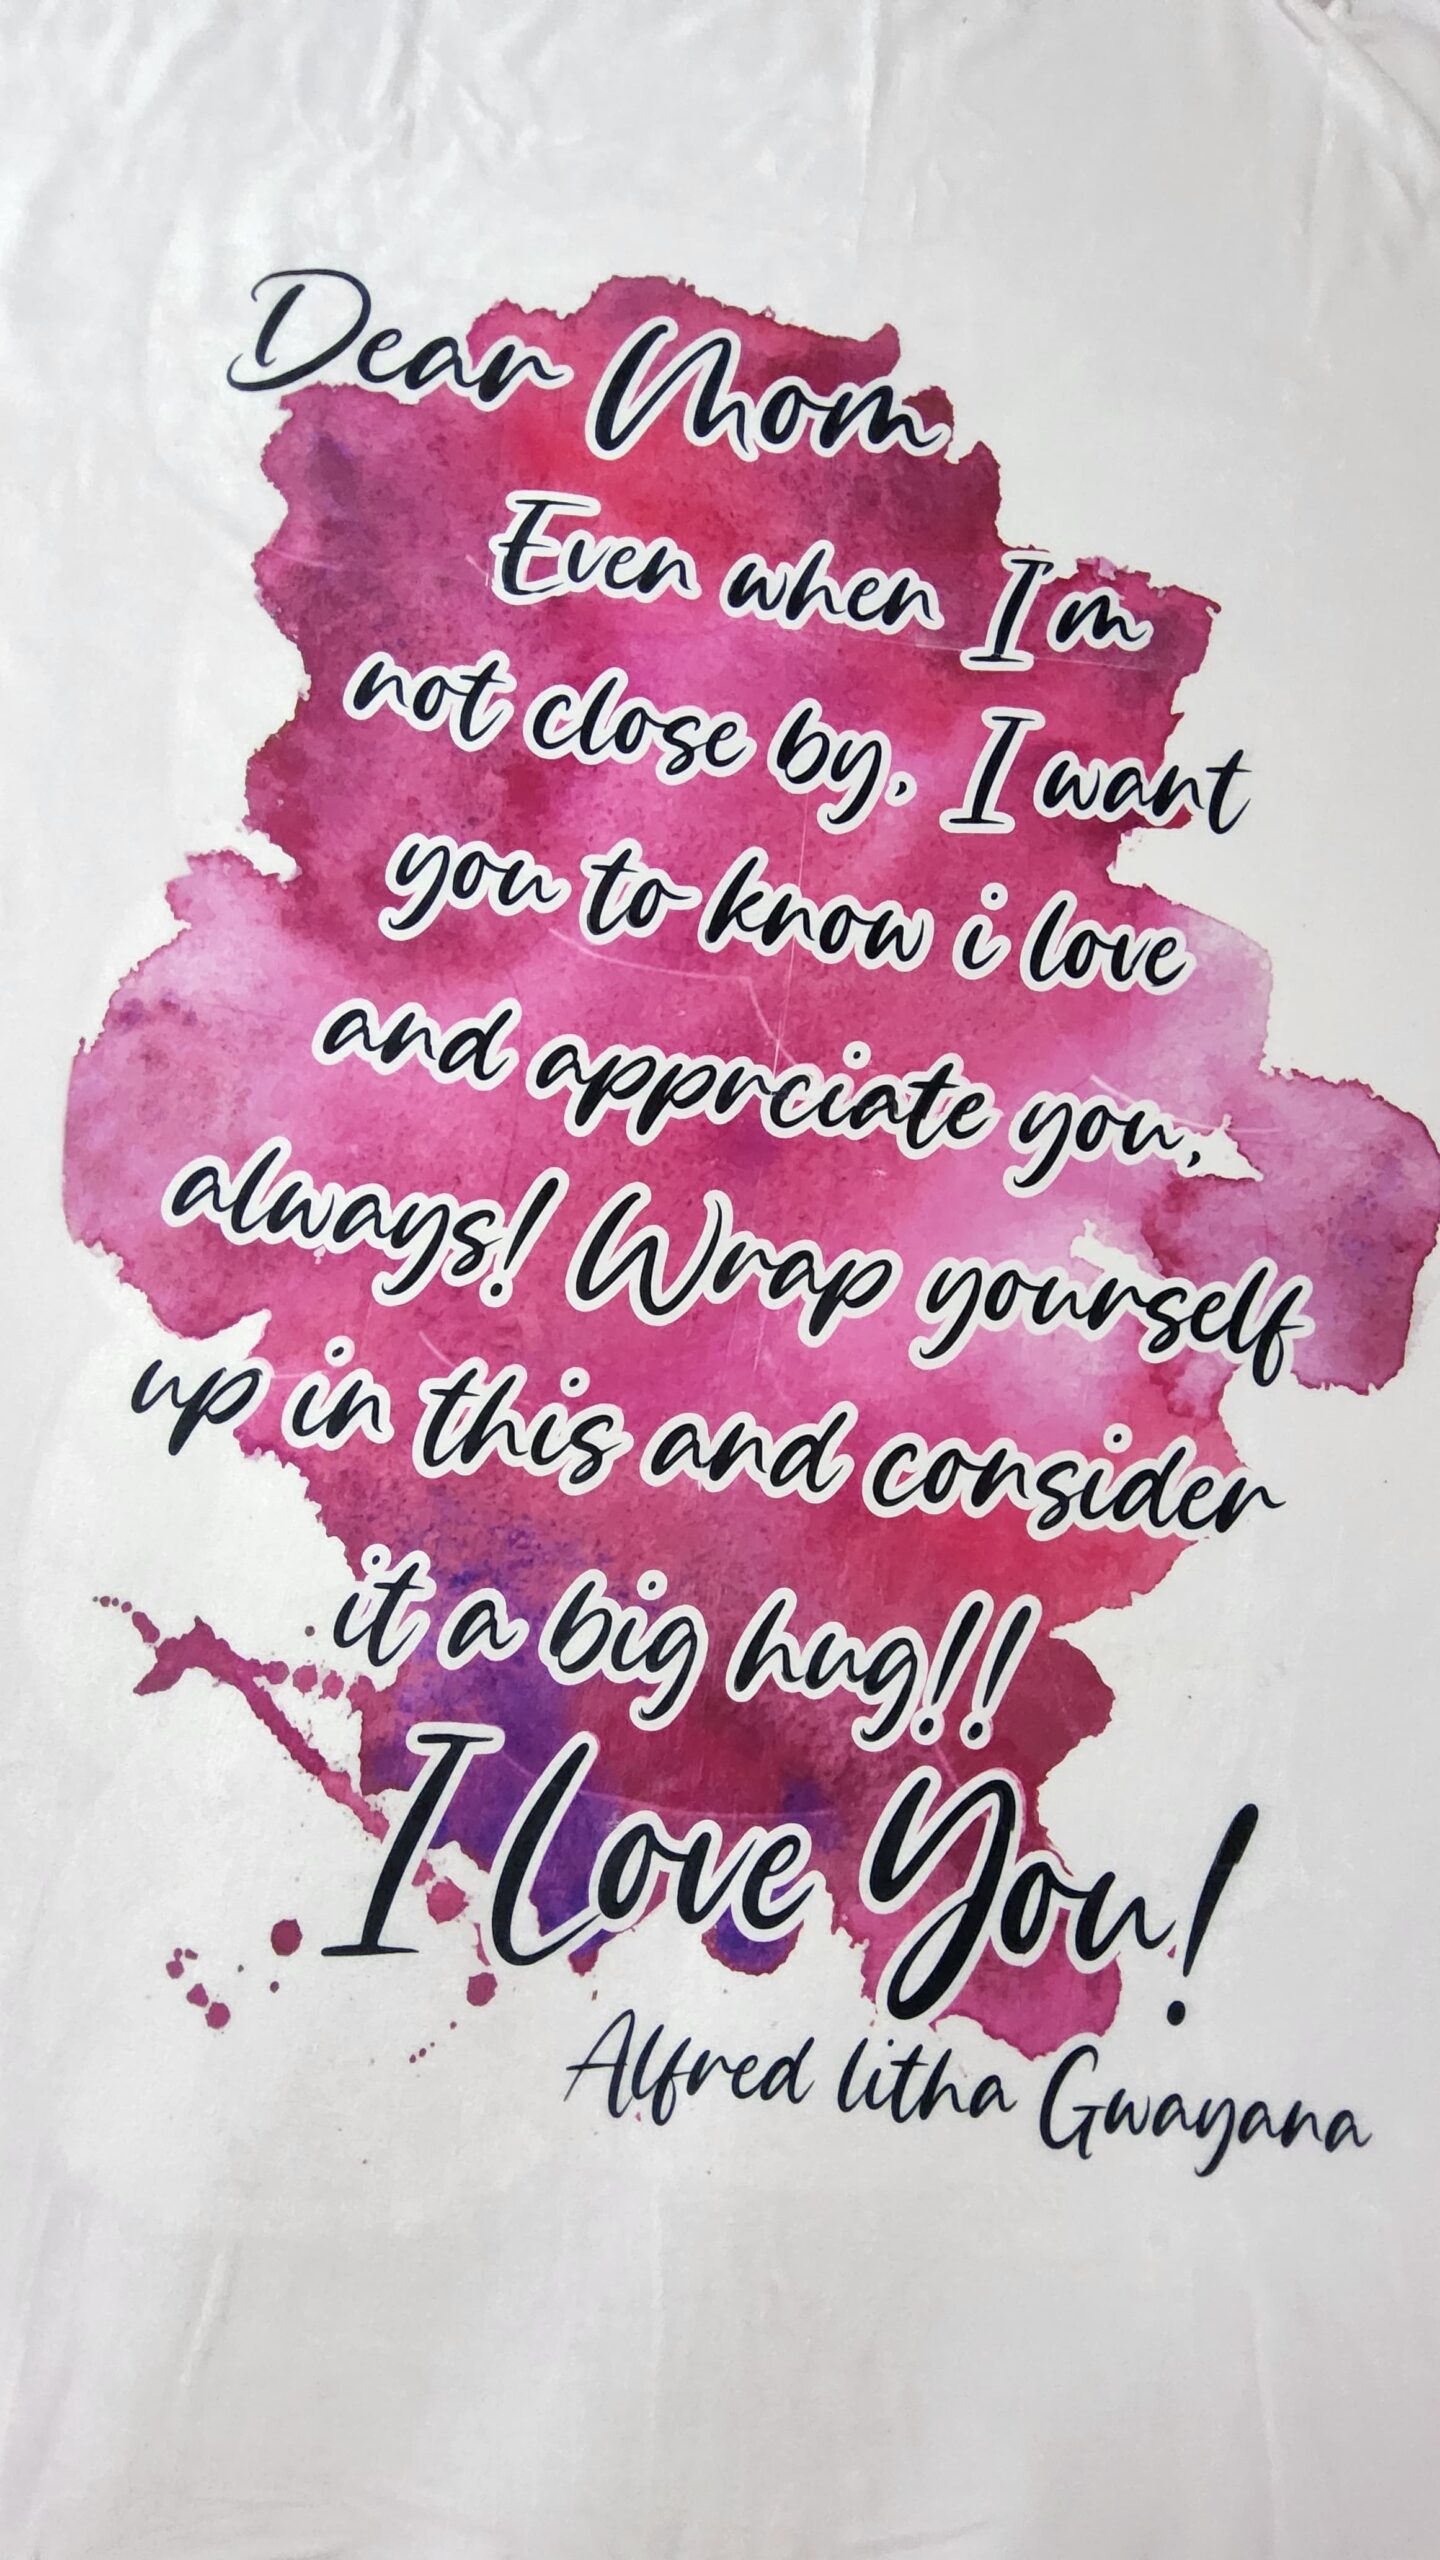 Dear Mom
Even when Im
not close by, I want
you to know i love
and apprciate you,
always! Wrap yourself
up in this and consider
it a big hug!!
I Love You!
Alfred litha Gwayana